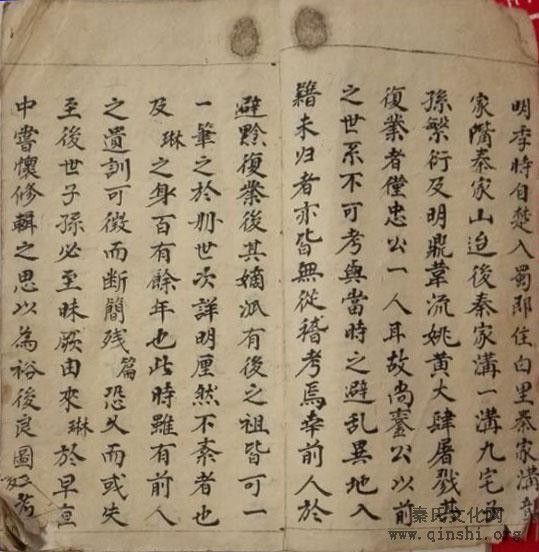 明季時自楚入蜀即住白里秦家溝龔
家嘴秦家山迨後秦家溝一溝九宅子
孫繁衍及明鼎革流姚黄大肆屠戮其
復業者僅忠公一人耳故尚鑾公以前
之世系不可考與當時之避乱異地入
籍未归者亦皆無從稽考焉幸前人於
避黔復業後其嫡派有後之祖皆可一
一筆之於别世次詳明厘然不紊者也
及琳之身百有餘年也此時雖有前人
之遺訓可徵而断簡残篇恐久而或失
至後世子孫必至昧厥由來琳於早
中嘗懷修輯之思以為裕後良圖考
秦氏文化网
www.qinshi.org